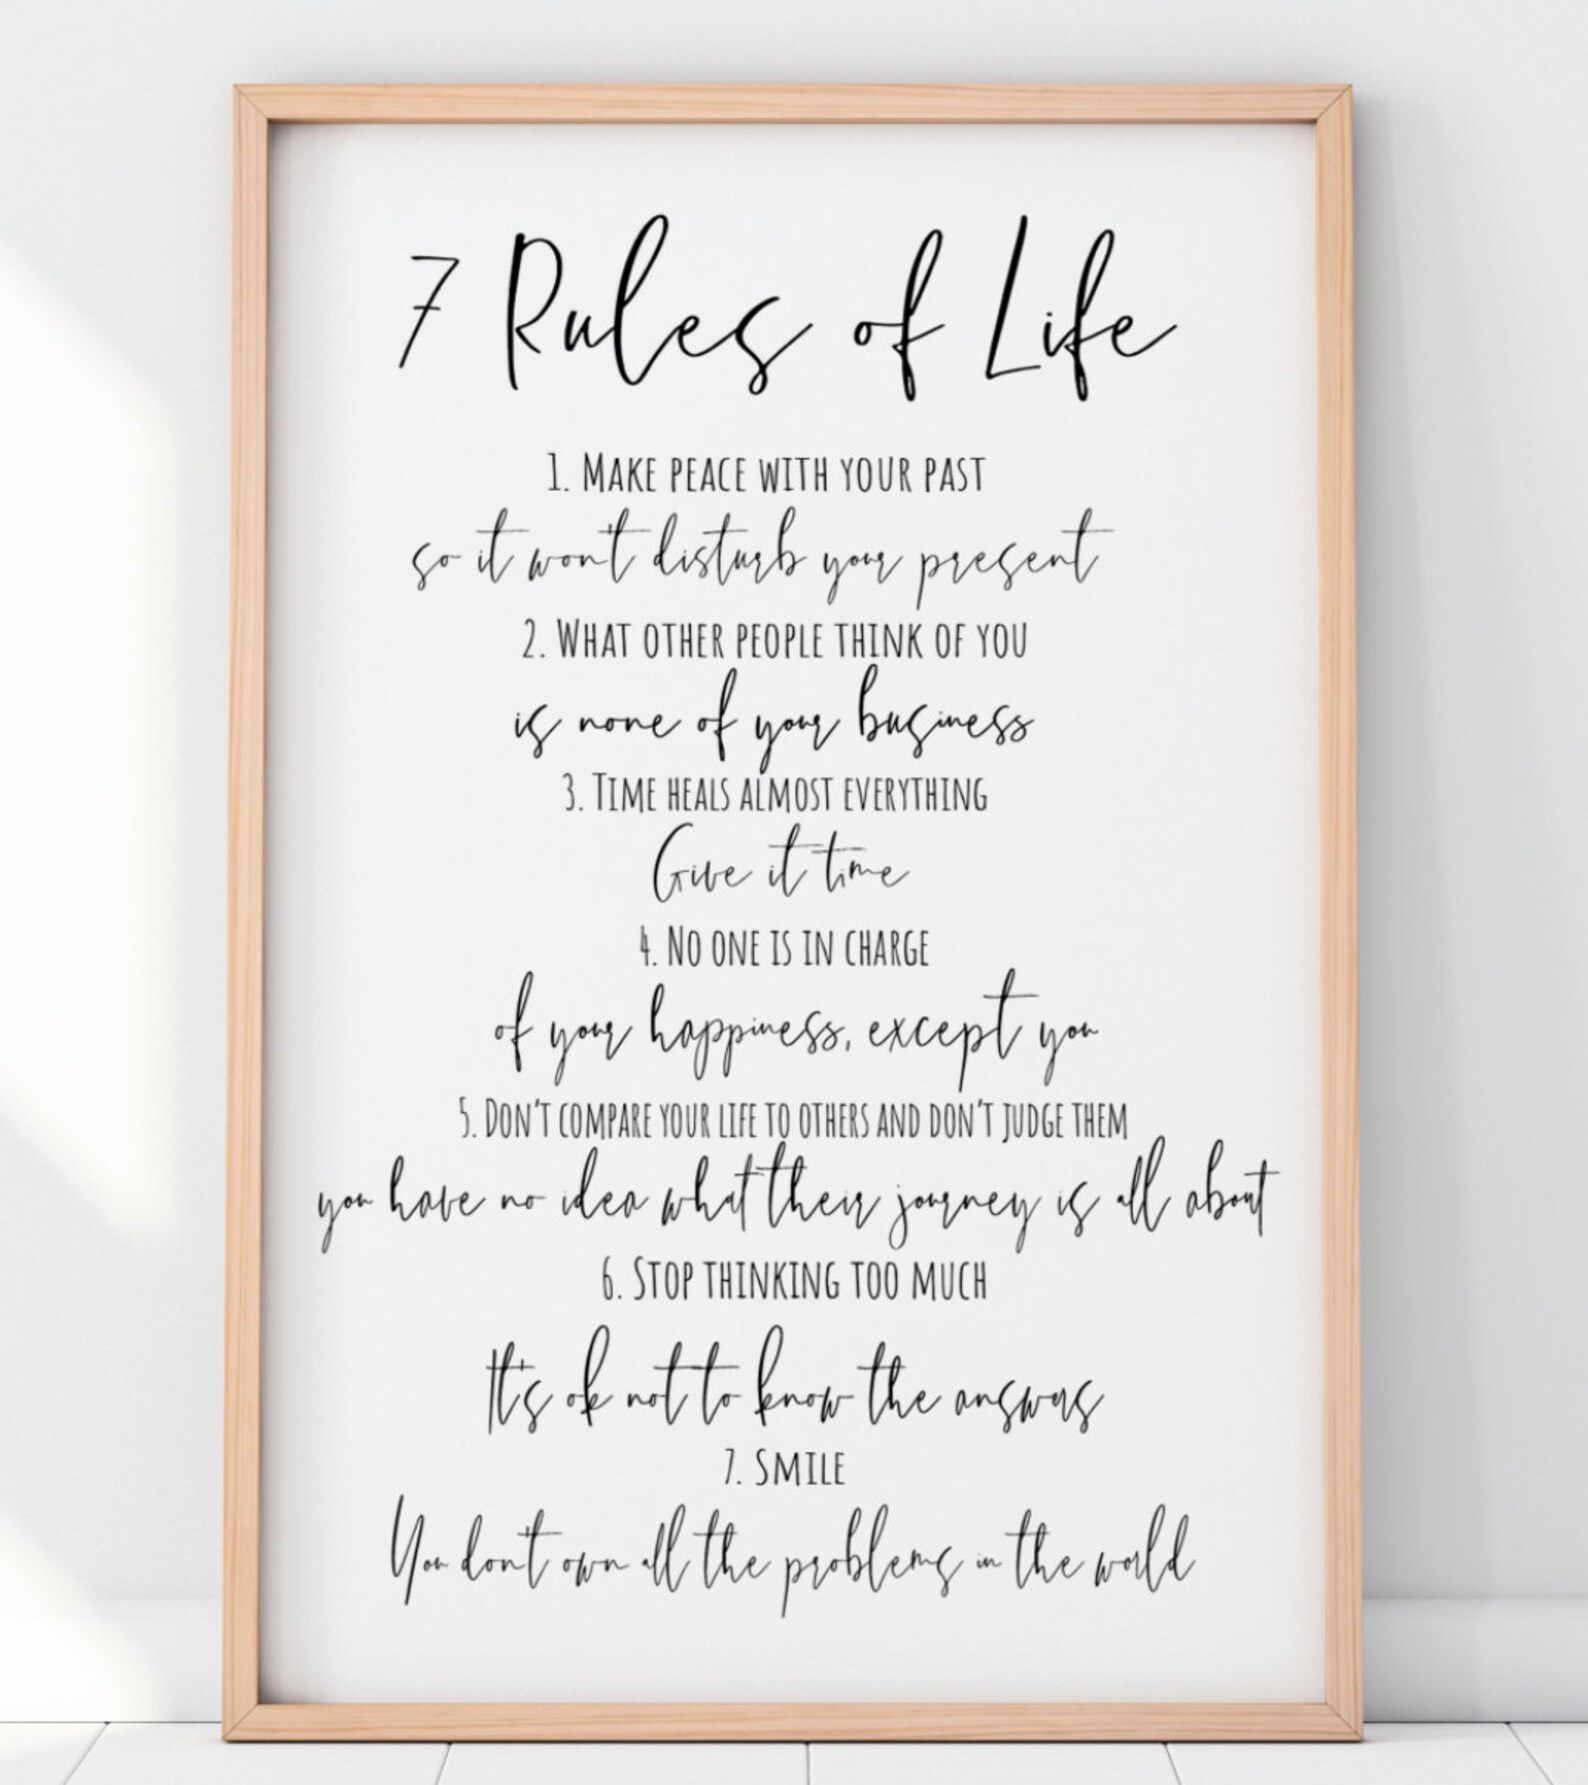 7 Rules of Life
1. Make peace with your past
so it won't disturb your present
2. What other people think of you
is none of your business
3. Time heals almost everything
Give it time
4. No one is in charge
of your happiness, except you
5. Don't compare your life to others and don't judge them
you have no idea what their journey is all about
6. Stop thinking too much
It's ok not to know the answers
7. Smile
You don't own all the problems in the world